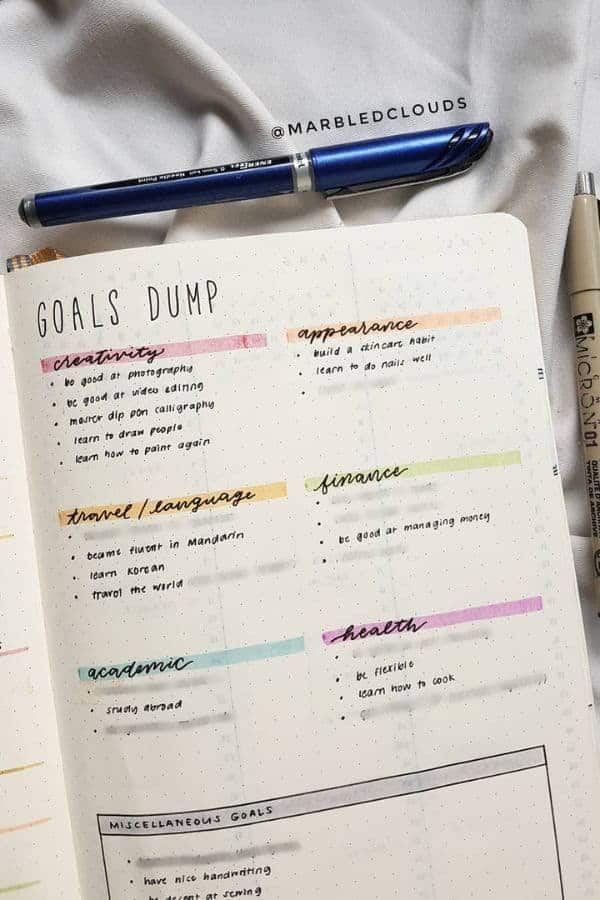 @MARBLEDCLOUDS
GOALS DUMP
creativity
• be good at photography
• be good at video editing
• master dip pen calligraphy
• learn to draw people
• learn how to paint again
appearance
• build a skincare habit
• learn to do nails well
•
travel / language
•
• became fluent in Mandarin
• learn Korean
• travel the world
finance
•
•
• be good at managing money
•
academic
•
• study abroad
•
health
•
• be flexible
• learn how to cook
•
MISCELLANEOUS GOALS
•
• have nice handwriting
be decent at sewing
ENERGEL
0.5mm ball Needle Point
MICRON 01